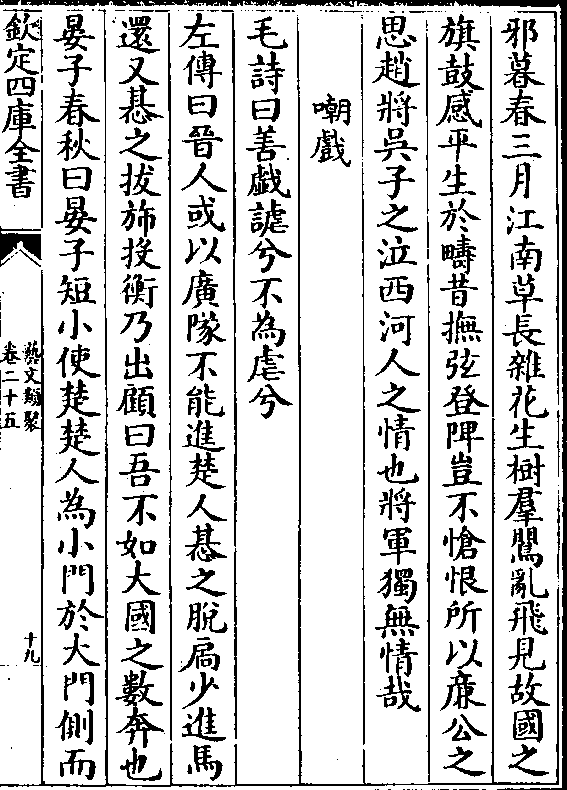 邪暮春三月江南草長雜花生樹羣鸎亂飛見故國之
旗鼓感平生於疇昔撫弦登陴豈不愴恨所以廉公之
思趙將吳子之泣西河人之情也將軍獨無情哉
嘲戲
毛詩曰善戯謔兮不為虐兮
左傳曰晉人或以廣隊不能進楚人惎之脫扄少進馬
還又惎之拔斾投衡乃出顧曰吾不如大國之數奔也
晏子春秋曰晏子短小使楚楚人為小門於大門側而
欽定四庫全書
藝文類聚
卷二十五
十九